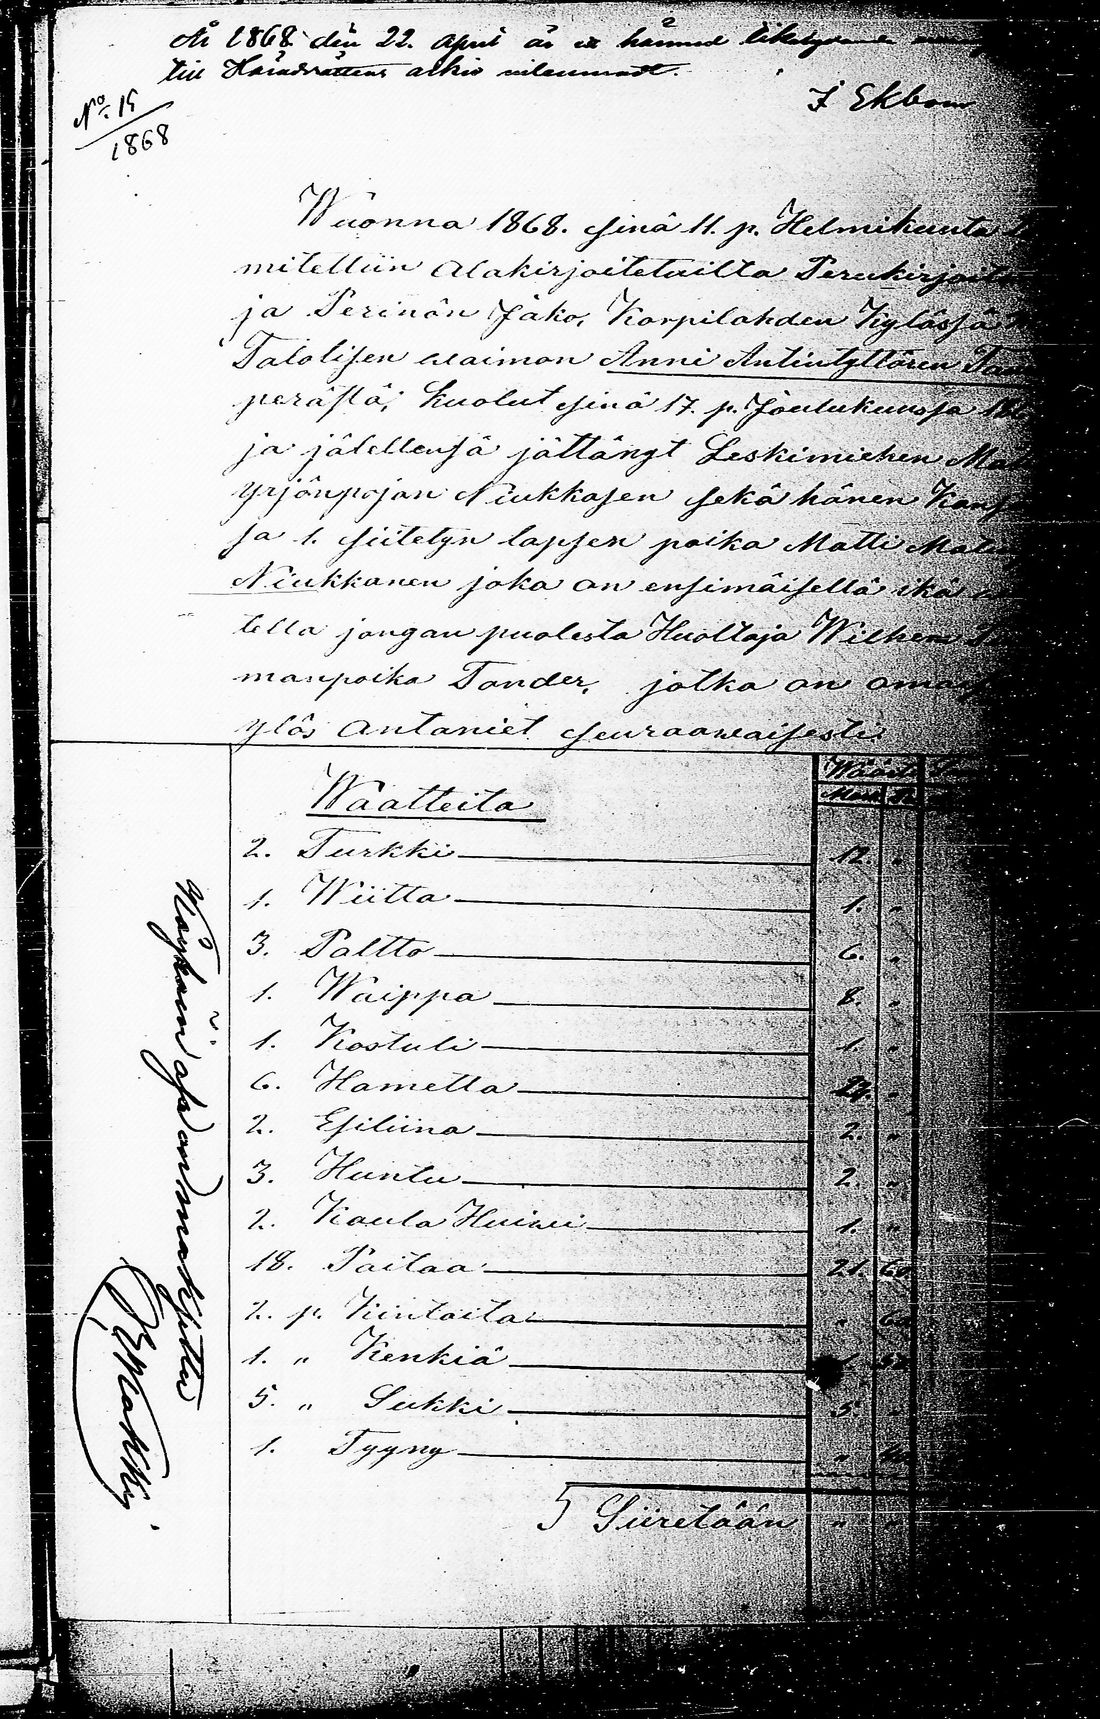 År 1868 den 22. April är ett härmed likelydande
till Häradsrättens arkiv inlemnadt.
J Ekbom
No. 15
1868
Wuonna 1868. sinä 11. p. Helmikuuta
mitelliin Alakirjoitetuilta Perukirjoitus
ja Perinön Jako, Korpilahden Kylässä
Talolisen waimon Anni Antintyttären
perästä; kuolut sinä 17. p. Joulukuussa
ja jälellensä jättänyt Leskimiehen
Yrjönpojan Niukkasen sekä hänen
sa 1. siitetyn lapsen poika Matti
Niukkanen joka on ensimäisellä ikä
tella jongan puolesta Huoltaja Wilhem
manpoika Tander, jotka on
ylös antaniet seuraawaisesti:
Waatteita
2. Turkki 12. "
1. Wiitta 1. "
3. Paltto 6. "
1. Waippa 8. "
1. Kostuli 1. "
6. Hametta 24. "
2. Esiliina 2. "
3. Huntu 2. "
2. Kaula Huiwi 1. "
18. Paitaa 21. 60
2. p. Kintaita " 60
1. " Kenkiä 1.
5. " Sukki 5. "
1. Tyyny "
Siiretään " "
Köyhäin osa on maksettu